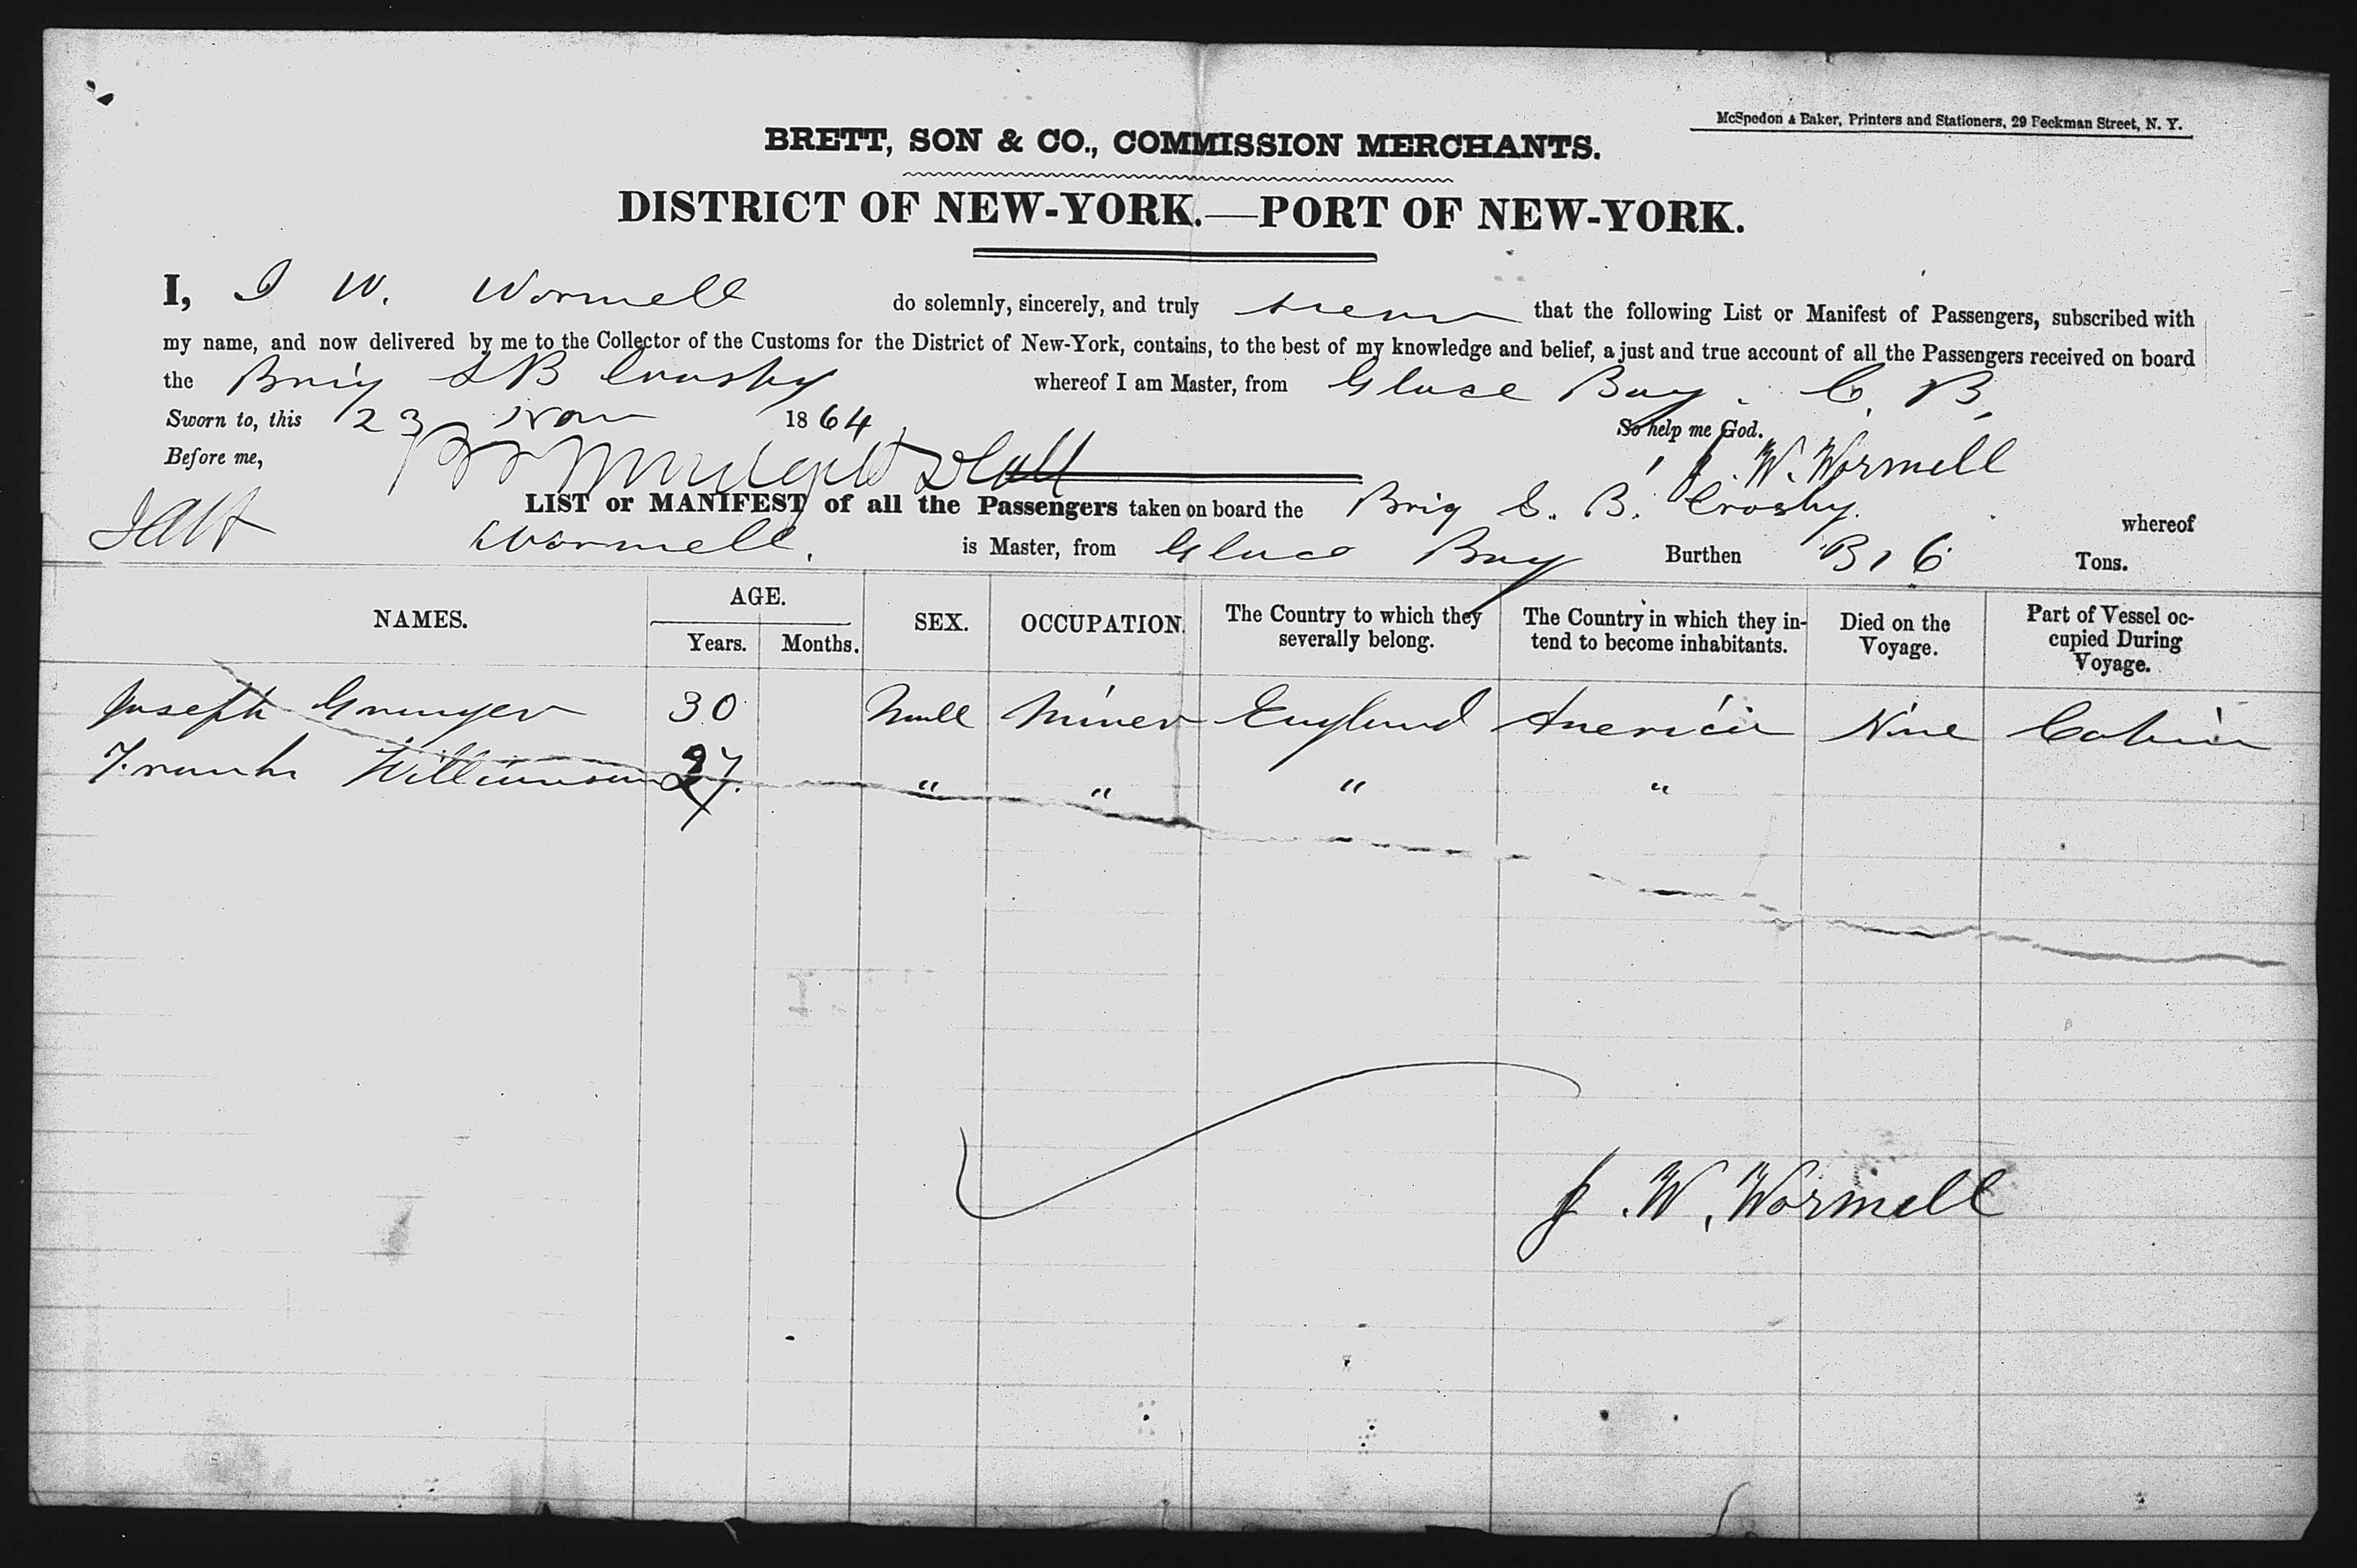 McSpedon & Baker, Printers and Stationers, 29 Beekman Street, N. Y.
BRETT, SON & CO., COMMISSION MERCHANTS.
DISTRICT OF NEW-YORK.—PORT OF NEW-YORK.
I, J W. Wormell do solemnly, sincerely, and truly swear that the following List or Manifest of Passengers, subscribed with
my name, and now delivered by me to the Collector of the Customs for the District of New-York, contains, to the best of my knowledge and belief, a just and true account of all the Passengers received on board
the Brig S B Crosby whereof I am Master, from Glace Bay. C. B.
Sworn to, this 23 Nov 1864 So help me God.
Before me, J. W. Wormell
LIST or MANIFEST of all the Passengers taken on board the Brig S. B. Crosby. whereof
Wormell. is Master, from Glace Bay Burthen Tons.
NAMES. AGE. Years. Months. SEX. OCCUPATION. The Country to which they severally belong. The Country in which they intend to become inhabitants. Died on the Voyage. Part of Vessel occupied During Voyage.
Joseph Grunger 30 Male Miner England America Nine Cabin
Frank Williamson 27 " " " "
J. W. Wormell